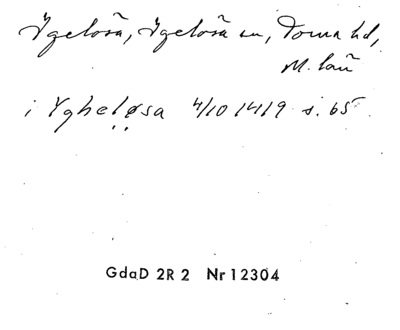 Igelösa, Igelösa sn, Torna hd,
M. län
i Ygheløsa 4/10 1419 s. 65
GdaD 2R 2 Nr 12304